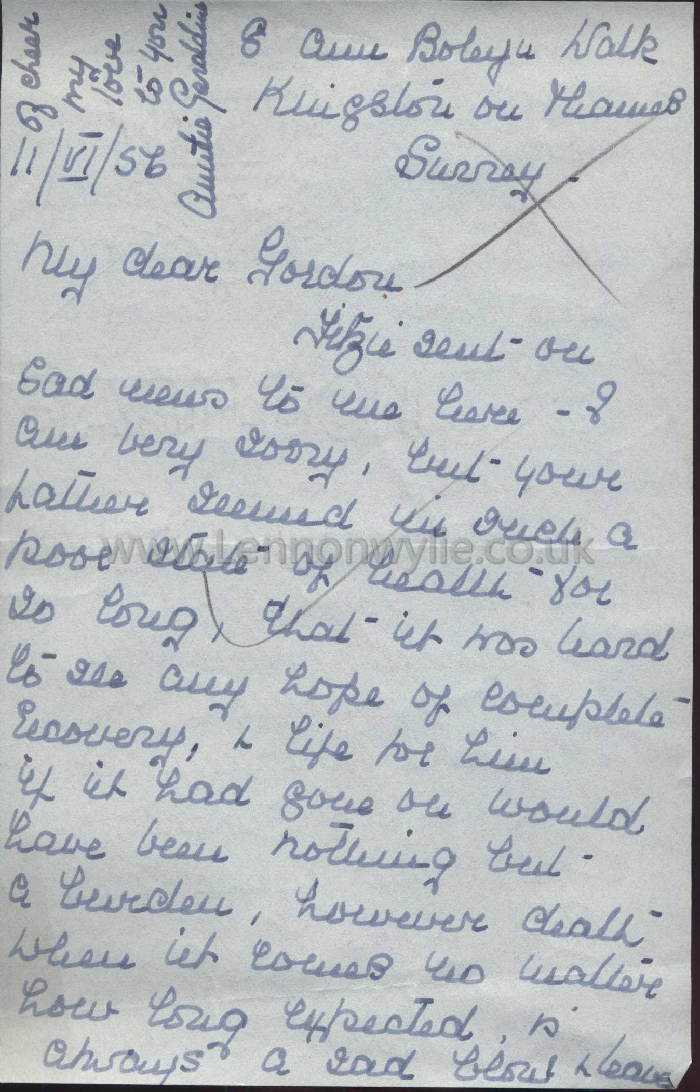 6 Ann Boleyn Walk
Kingston on Thames
Surrey.
11/VI/56
of cheer
my
love
to you
Auntie Geraldine
My dear Gordon
Fitzie sent on
sad news to me here - I
am very sorry, but your
father seemed in such a
poor state of health for
so long, that it was hard
to see any hope of complete
recovery, & life for him
if it had gone on would
have been nothing but
a burden, however death
when it comes no matter
how long expected, is
always a sad blow & leaves
www.Lennonwylie.co.uk